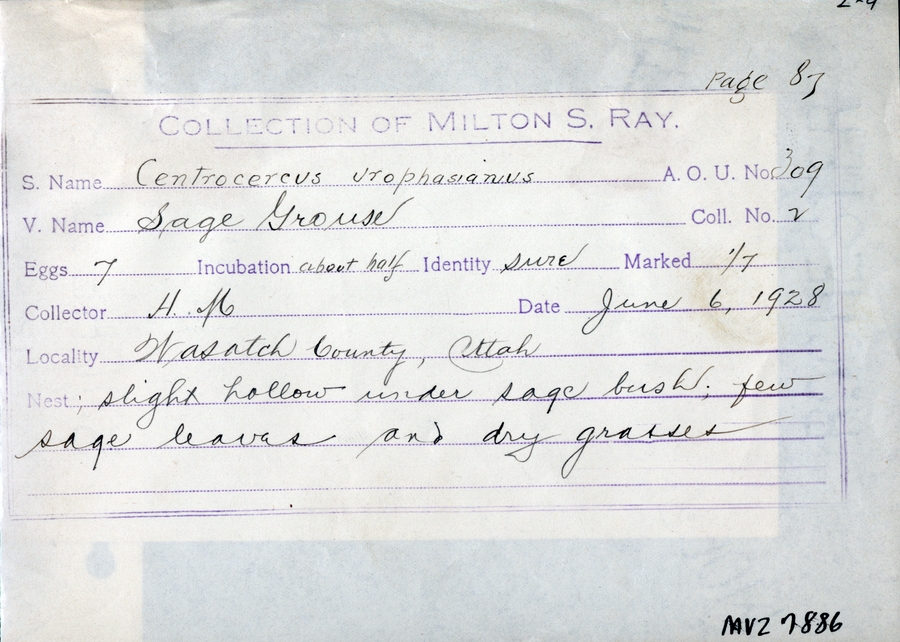 2-4
Page 83
COLLECTION OF MILTON S. RAY.
S. Name Centrocercus urophasianus A. O. U. No. 309
V. Name Sage Grouse Coll. No. 2
Eggs 7 Incubation about half Identity sure Marked 1/7
Collector H. M Date June 6, 1928
Locality Wasatch County, Utah
Nest; slight hollow under sage bush; few
sage leaves and dry grasses
MVZ 7886